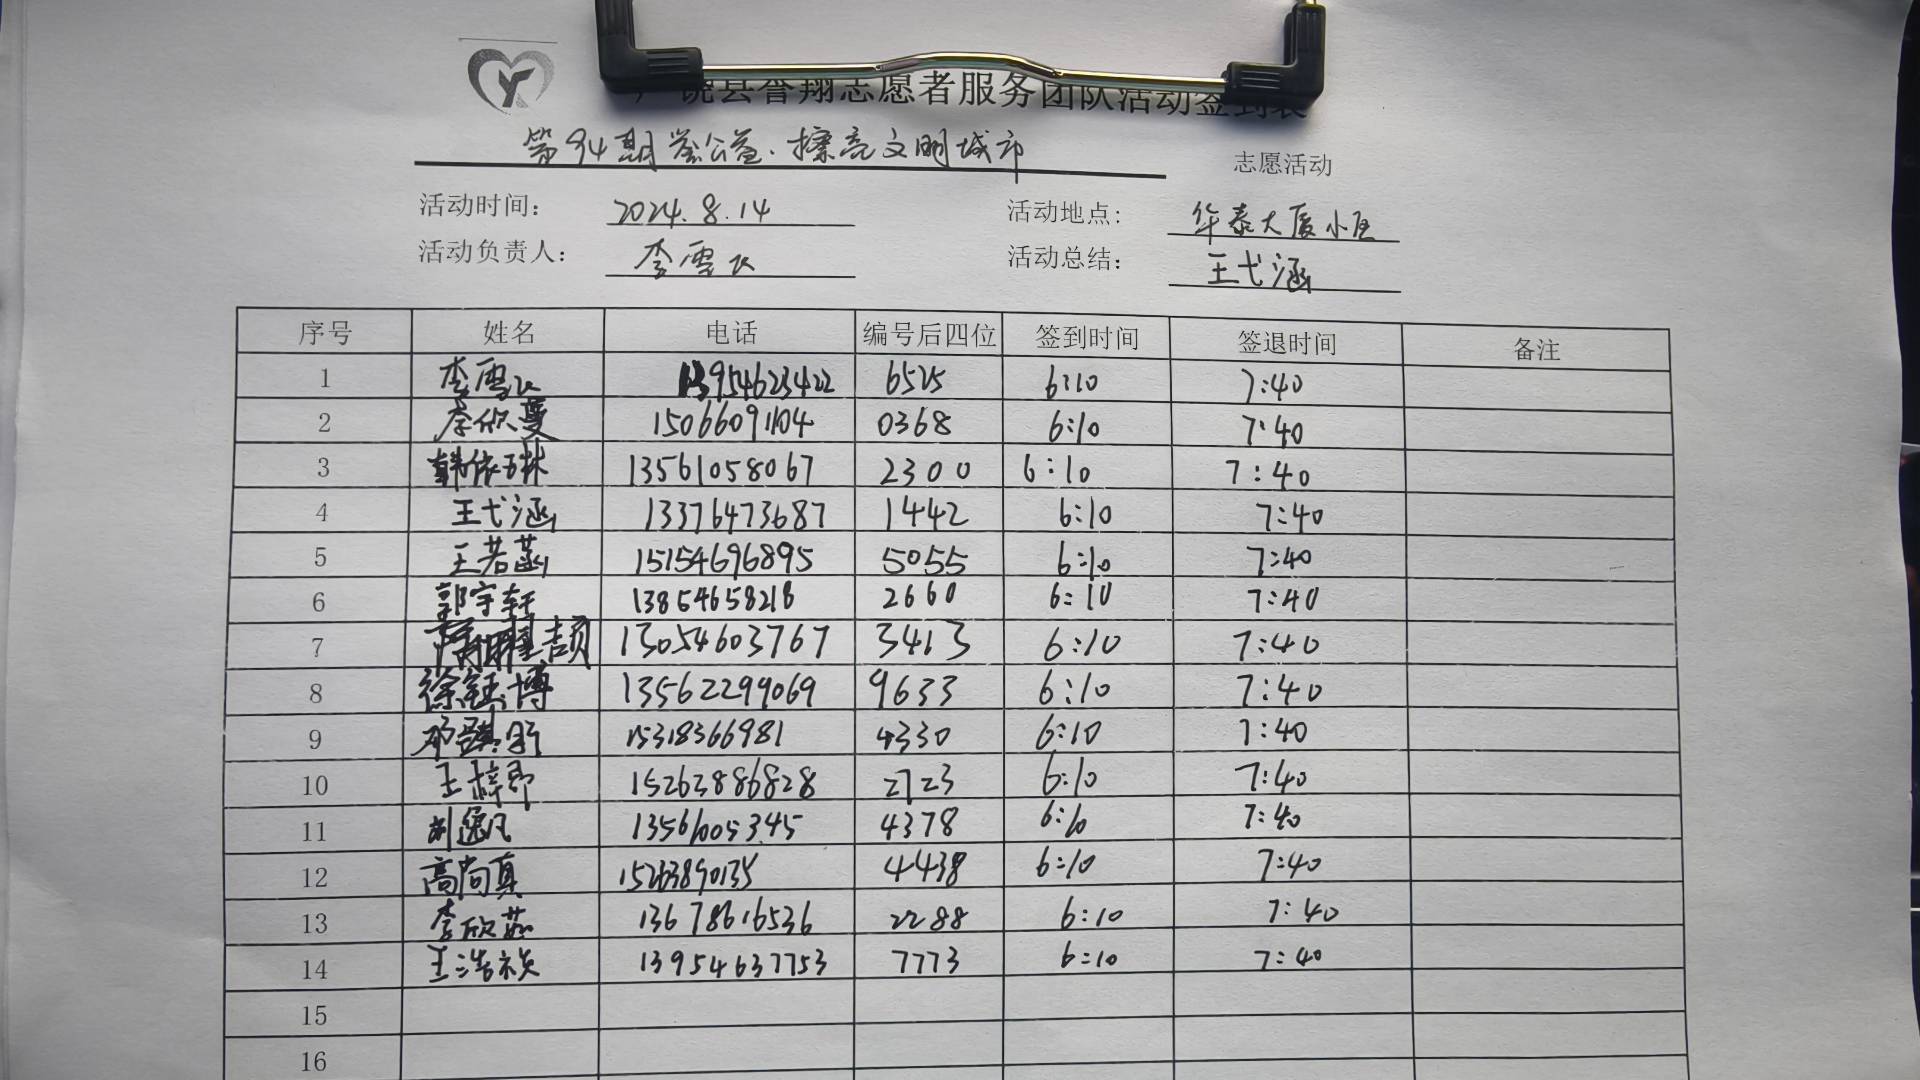 饶县誉翔志愿者服务团队活动签到表
第94期誉公益·擦亮文明城市 志愿活动
活动时间： 2024.8.14 活动地点： 华泰大厦小区
活动负责人： 李雪飞 活动总结： 王弋涵
序号 姓名 电话 编号后四位 签到时间 签退时间 备注
1 李雪飞 13954623422 6525 6:10 7:40
2 李欣蔓 15066091104 0368 6:10 7:40
3 韩依琳 13561058067 2300 6:10 7:40
4 王弋涵 13376473687 1442 6:10 7:40
5 王若菡 15154696895 5055 6:10 7:40
6 郭宇轩 13854658218 2660 6:10 7:40
7 13054603767 3413 6:10 7:40
8 徐钰博 13562299069 9633 6:10 7:40
9 邓骐郡 15318366981 4330 6:10 7:40
10 王梓郡 15263886828 2723 6:10 7:40
11 刘逸凡 13561005345 4378 6:10 7:40
12 高尚真 15263890135 4438 6:10 7:40
13 李欣茹 13678616536 2288 6:10 7:40
14 王浩祯 13954637753 7773 6:10 7:40
15
16